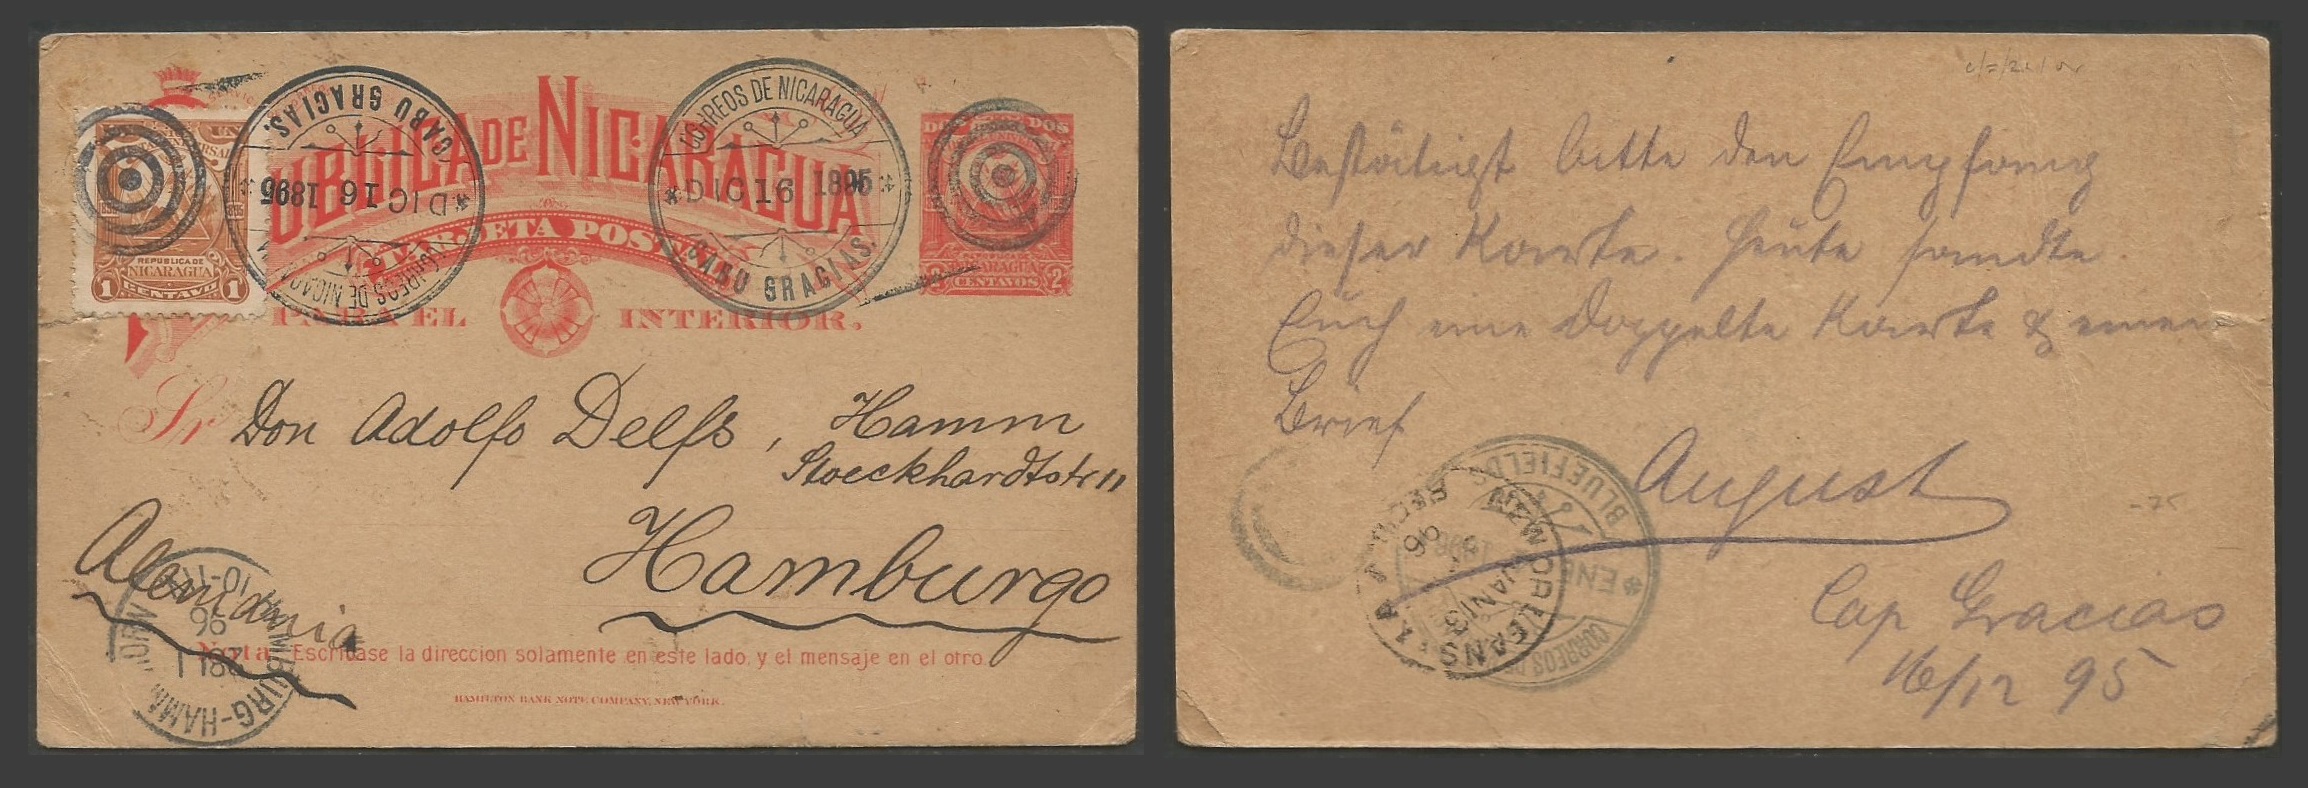 UN
REPUBLICA DE
NICARAGUA
1 CENTAVO 1
CORREOS DE NICARAGUA
DIC 16 1895
CABO GRACIAS.
CORREOS DE NICARAGUA
DIC 16 1895
CABO GRACIAS.
UBLICA DE NICARAGUA
TARJETA POSTAL
PARA EL INTERIOR.
DOS DOS
NICARAGUA
2 CENTAVOS 2
Sr Don Adolfo Delfs, Hamm
Stoeckhardtstr 11
Hamburgo
Alemania
HAMBURG-HAMM
96
10-11
Nota Escribase la direccion solamente en este lado y el mensaje en el otro.
HAMILTON BANK NOTE COMPANY, NEW YORK.
Bestätigt bitte den Empfang
dieser Karte. Heute sandte
Euch eine doppelte Karte & einen
Brief
August
Cap Gracias
16/12 95
BLUEFIELDS
ENE
CORREOS DE
NEW ORLEANS LA
JAN 13
96
REC'D